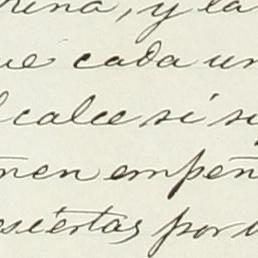 rina, y la
ue cada un
l calce si s
men empeñ
esiertas por